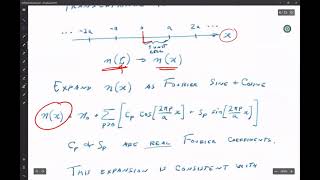 -2a -a 0 a 2a ... x
1 unit cell
n(r) → n(x)
EXPAND n(x) AS FOURIER SINE + COSINE
n(x) = n₀ + Σ p>0 [Cp cos[2πp/a x] + Sp sin[2πp/a x]]
Cp & Sp ARE REAL FOURIER COEFFICIENTS.
THIS EXPANSION IS CONSISTENT WITH